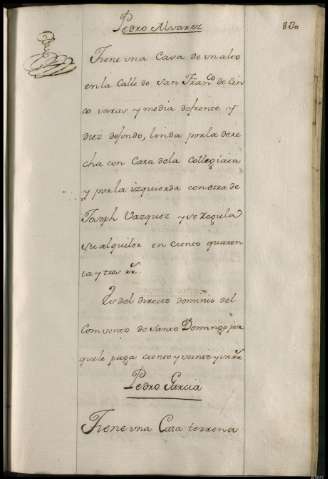 Pedro Alvarez
Tiene una Casa de un alto
en la Calle de San Franco de cin
co varas y media de frente y
diez de fondo, linda por la dere
cha con Casa de la Collegiata
y por la izquierda con otra de
Joseph Vazquez y se regula
su alquiler en ciento quaren
ta y tres rs.
Es del directo dominio del
Convento de Santo Domingo, por
que le paga ciento y veinte y
Pedro Garcia
Tiene una Casa terrena